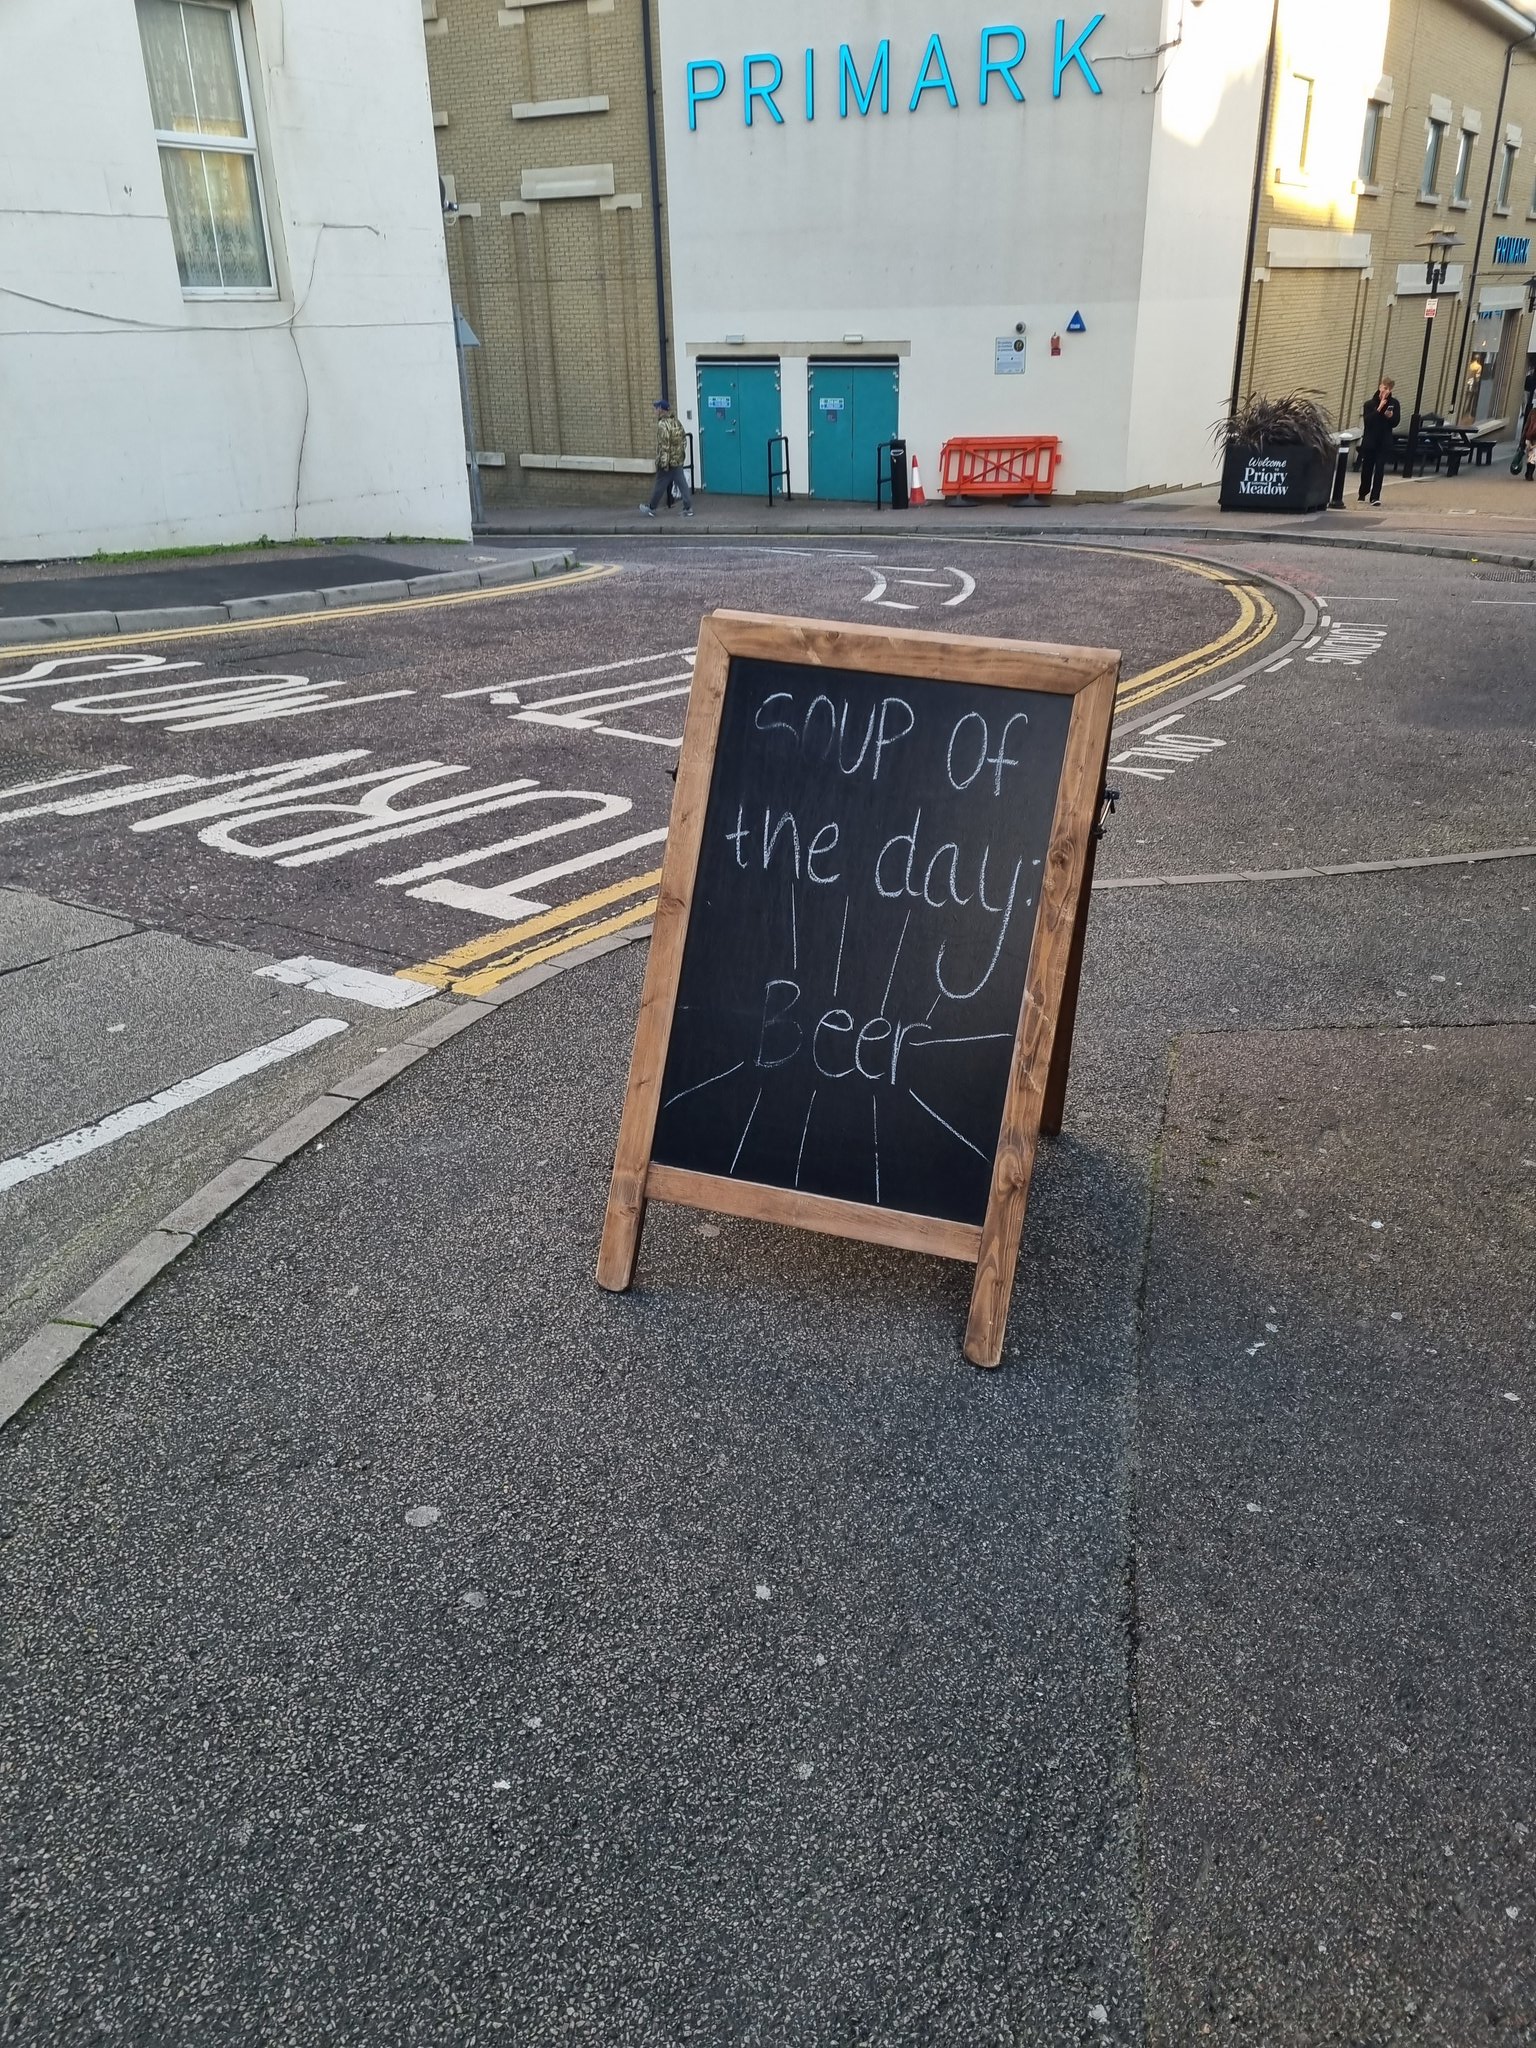 PRIMARK
PRIMARK
Welcome
Priory
Meadow
LOADING
ONLY
SLOW
TURN
soup of
the day:
Beer